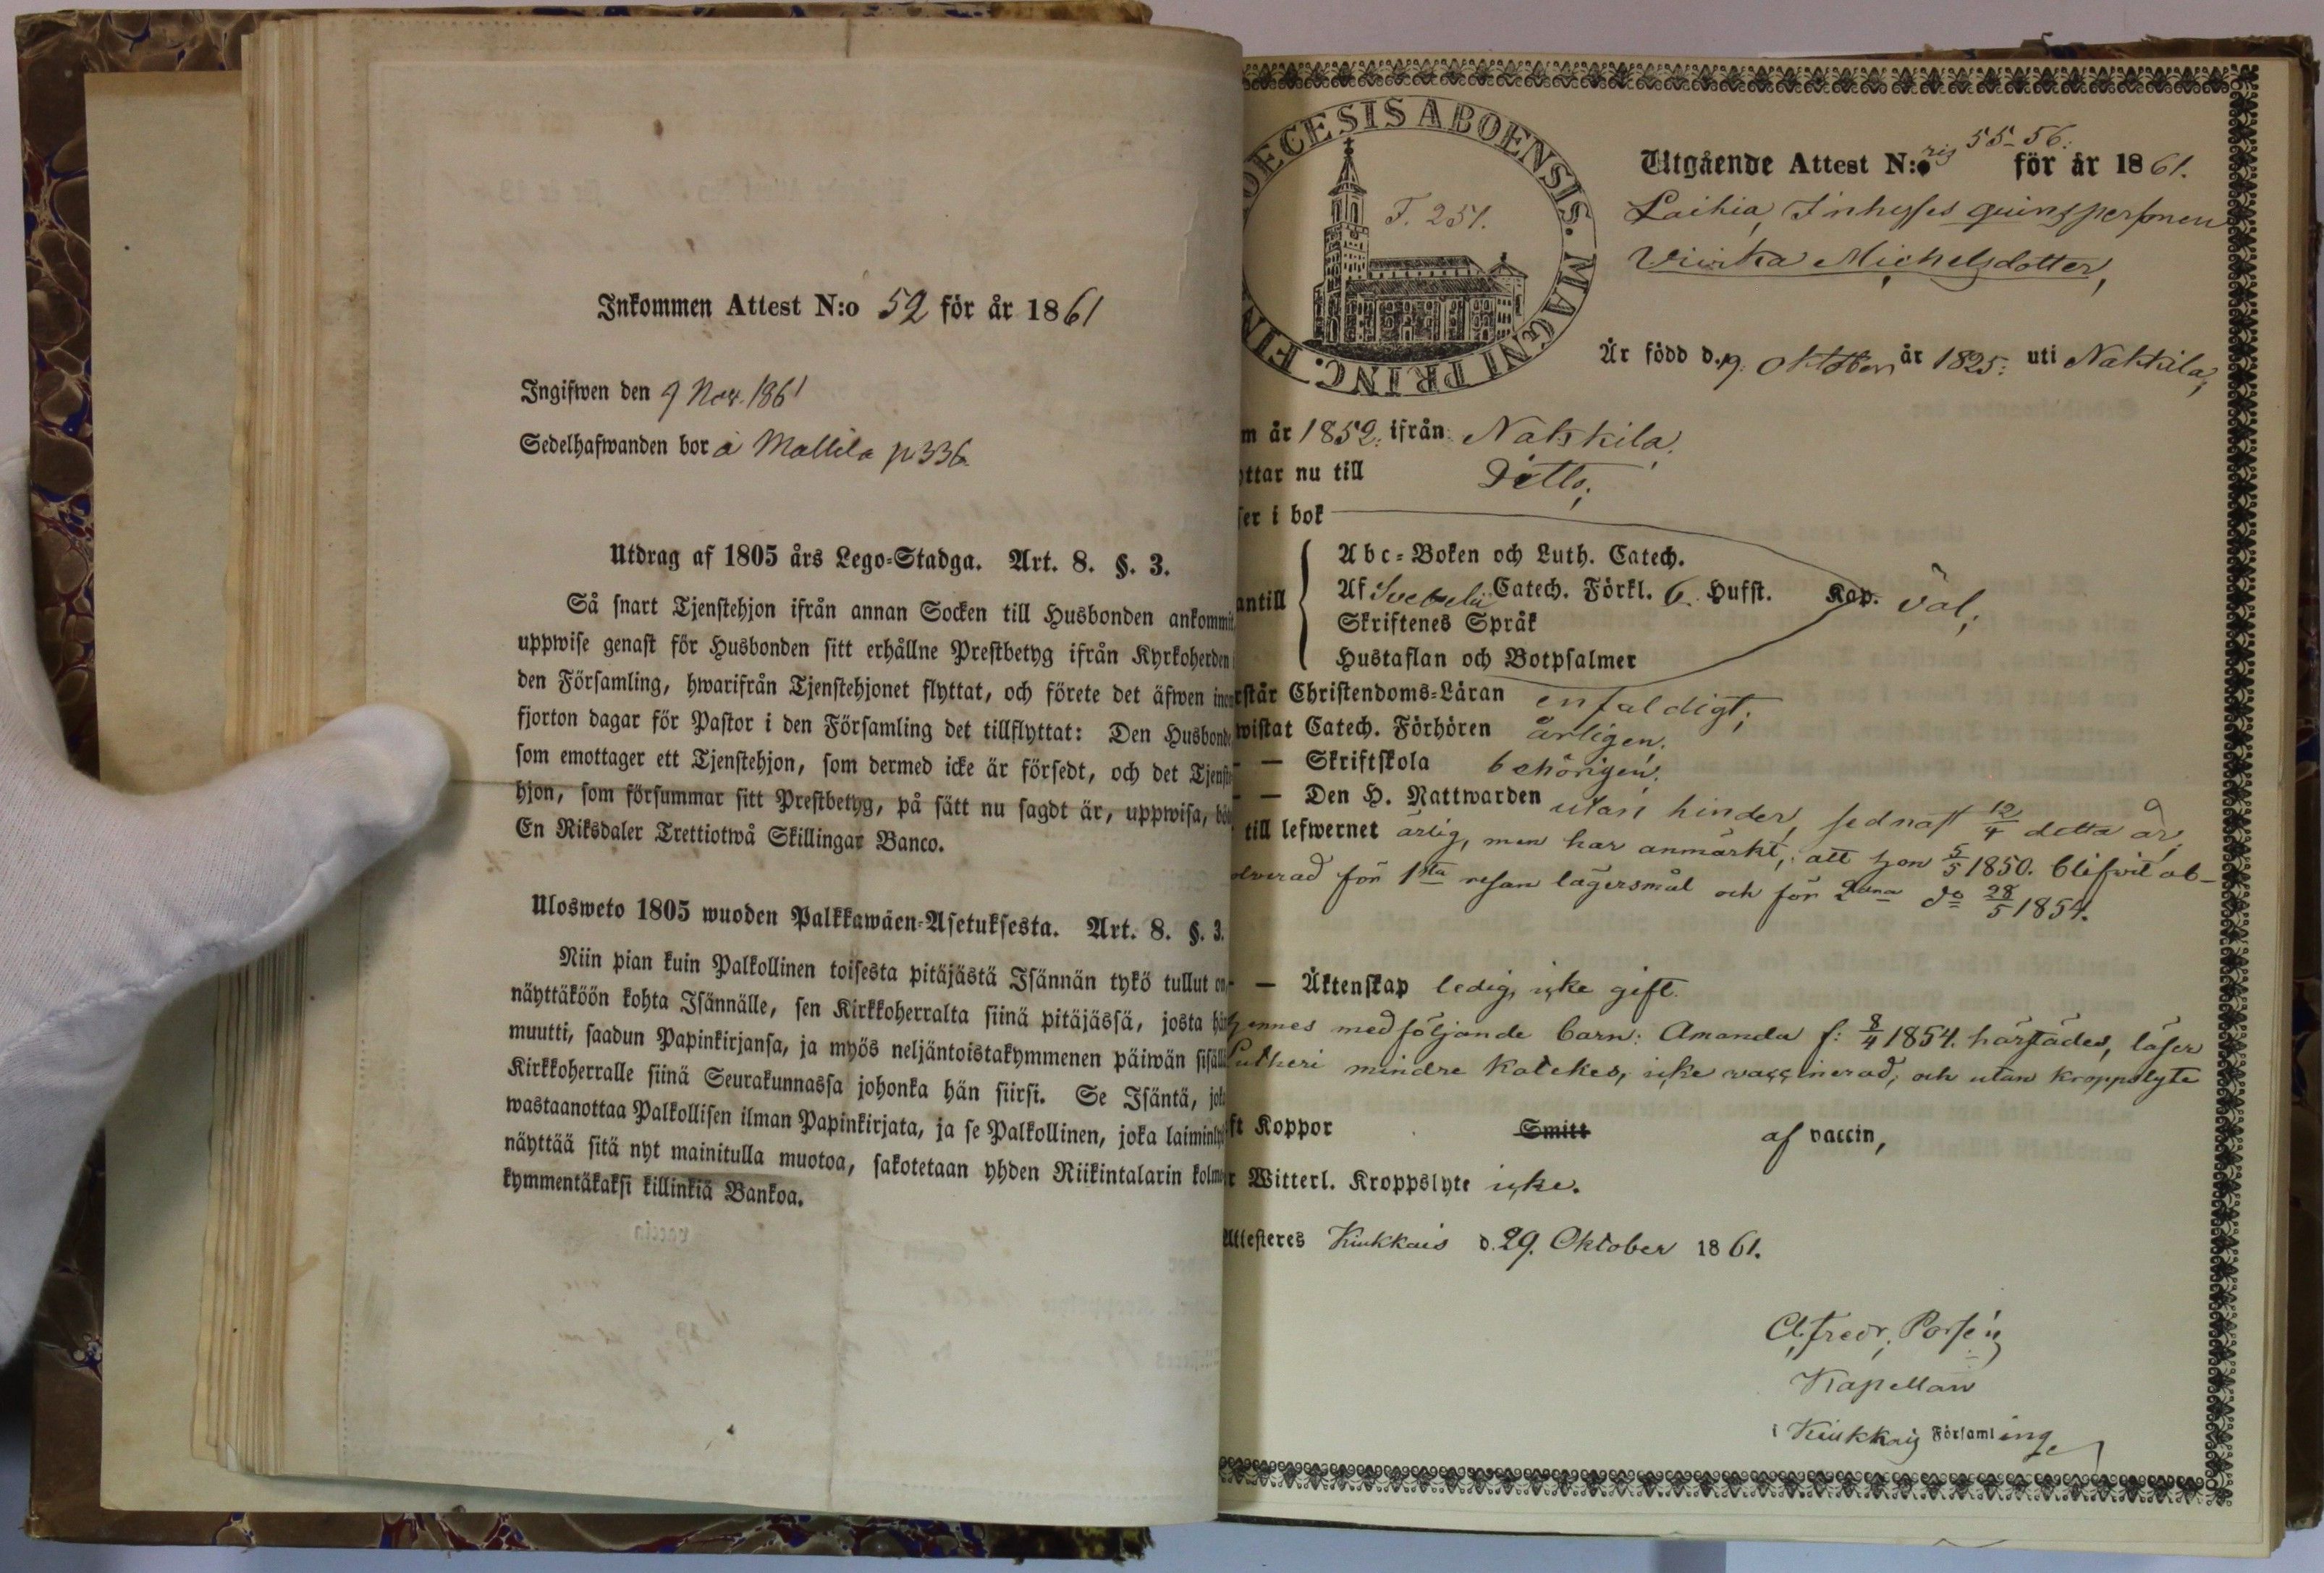 Inkommen Attest N:o 52 för år 1861
Ingifwen den 9 Nov. 1861
Sedelhafwanden bor å Mallila p 336
Utdrag af 1805 års Lego-Stadga. Art. 8. §. 3.
Så snart Tjenstehjon ifrån annan Socken till Husbonden ankommit,
uppwise genast för Husbonden sitt erhållne Prestbetyg ifrån Kyrkoherden i
den Församling, hwarifrån Tjenstehjonet flyttat, och förete det äfwen inom
fjorton dagar för Pastor i den Församling det tillflyttat: Den Husbonde
som emottager ett Tjenstehjon, som dermed icke är försedt, och det Tjenste-
hjon, som försummar sitt Prestbetyg, på sätt nu sagdt är, uppwisa, böte
En Riksdaler Trettiotwå Skillingar Banco.
Ulosweto 1805 wuoden Palkkawäen-Asetuksesta. Art. 8. §. 3.
Niin pian kuin Palkollinen toisesta pitäjästä Isännän tykö tullut on,
näyttäköön kohta Isännälle, sen Kirkkoherralta siinä pitäjässä, josta hän
muutti, saadun Papinkirjansa, ja myös neljäntoistakymmenen päiwän sisällä
Kirkkoherralle siinä Seurakunnassa johonka hän siirsi. Se Isäntä, joka
wastaanottaa Palkollisen ilman Papinkirjata, ja se Palkollinen, joka laiminlyö
näyttää sitä nyt mainitulla muotoa, sakotetaan yhden Riikintalarin kolme-
kymmentäkaksi killinkiä Bankoa.
DECESIS ABOENSIS. MAGNI PRINC. FIN
F. 251.
Utgående Attest N:ris 55-56. för år 1861.
Laihia, Inhyses qvinspersonen
Viivika Michelsdotter,
Är född d. 19. Oktober år 1825. uti Nakkila,
m år 1852. ifrån Nakkila.
yttar nu till Ditto.
ser i bok
antill
Abc-Boken och Luth. Catech.
Af Svebelii Catech. Förkl. 6. Hufst. Kap. väl,
Skriftenes Språk
Hustaflan och Botpsalmer
rstår Christendoms-Läran enfaldigt;
wistat Catech. Förhören årligen.
— — Skriftskola behörigen.
— — Den H. Nattwarden utan hinder, sednast 12/4 detta år,
till lefwernet ärlig, men har anmärkt, att hon 5/5 1850. blifvit ab-
olverad för 1sta resan lägersmål och för 2dra do 28/5 1854.
— — Äktenskap ledig, icke gift.
Hennes medföljande barn: Amanda f: 8/4 1854. härstädes, läser
Lutheri mindre Katekes, icke vaccinerad, och utan kroppslyte
ft Koppor Smitt af vaccin,
r Witterl. Kroppslyte icke.
Attesteres Kiukkais d. 29. Oktober 1861.
A. Fredr. Porsén
Kapellan
i Kiukkais Församling